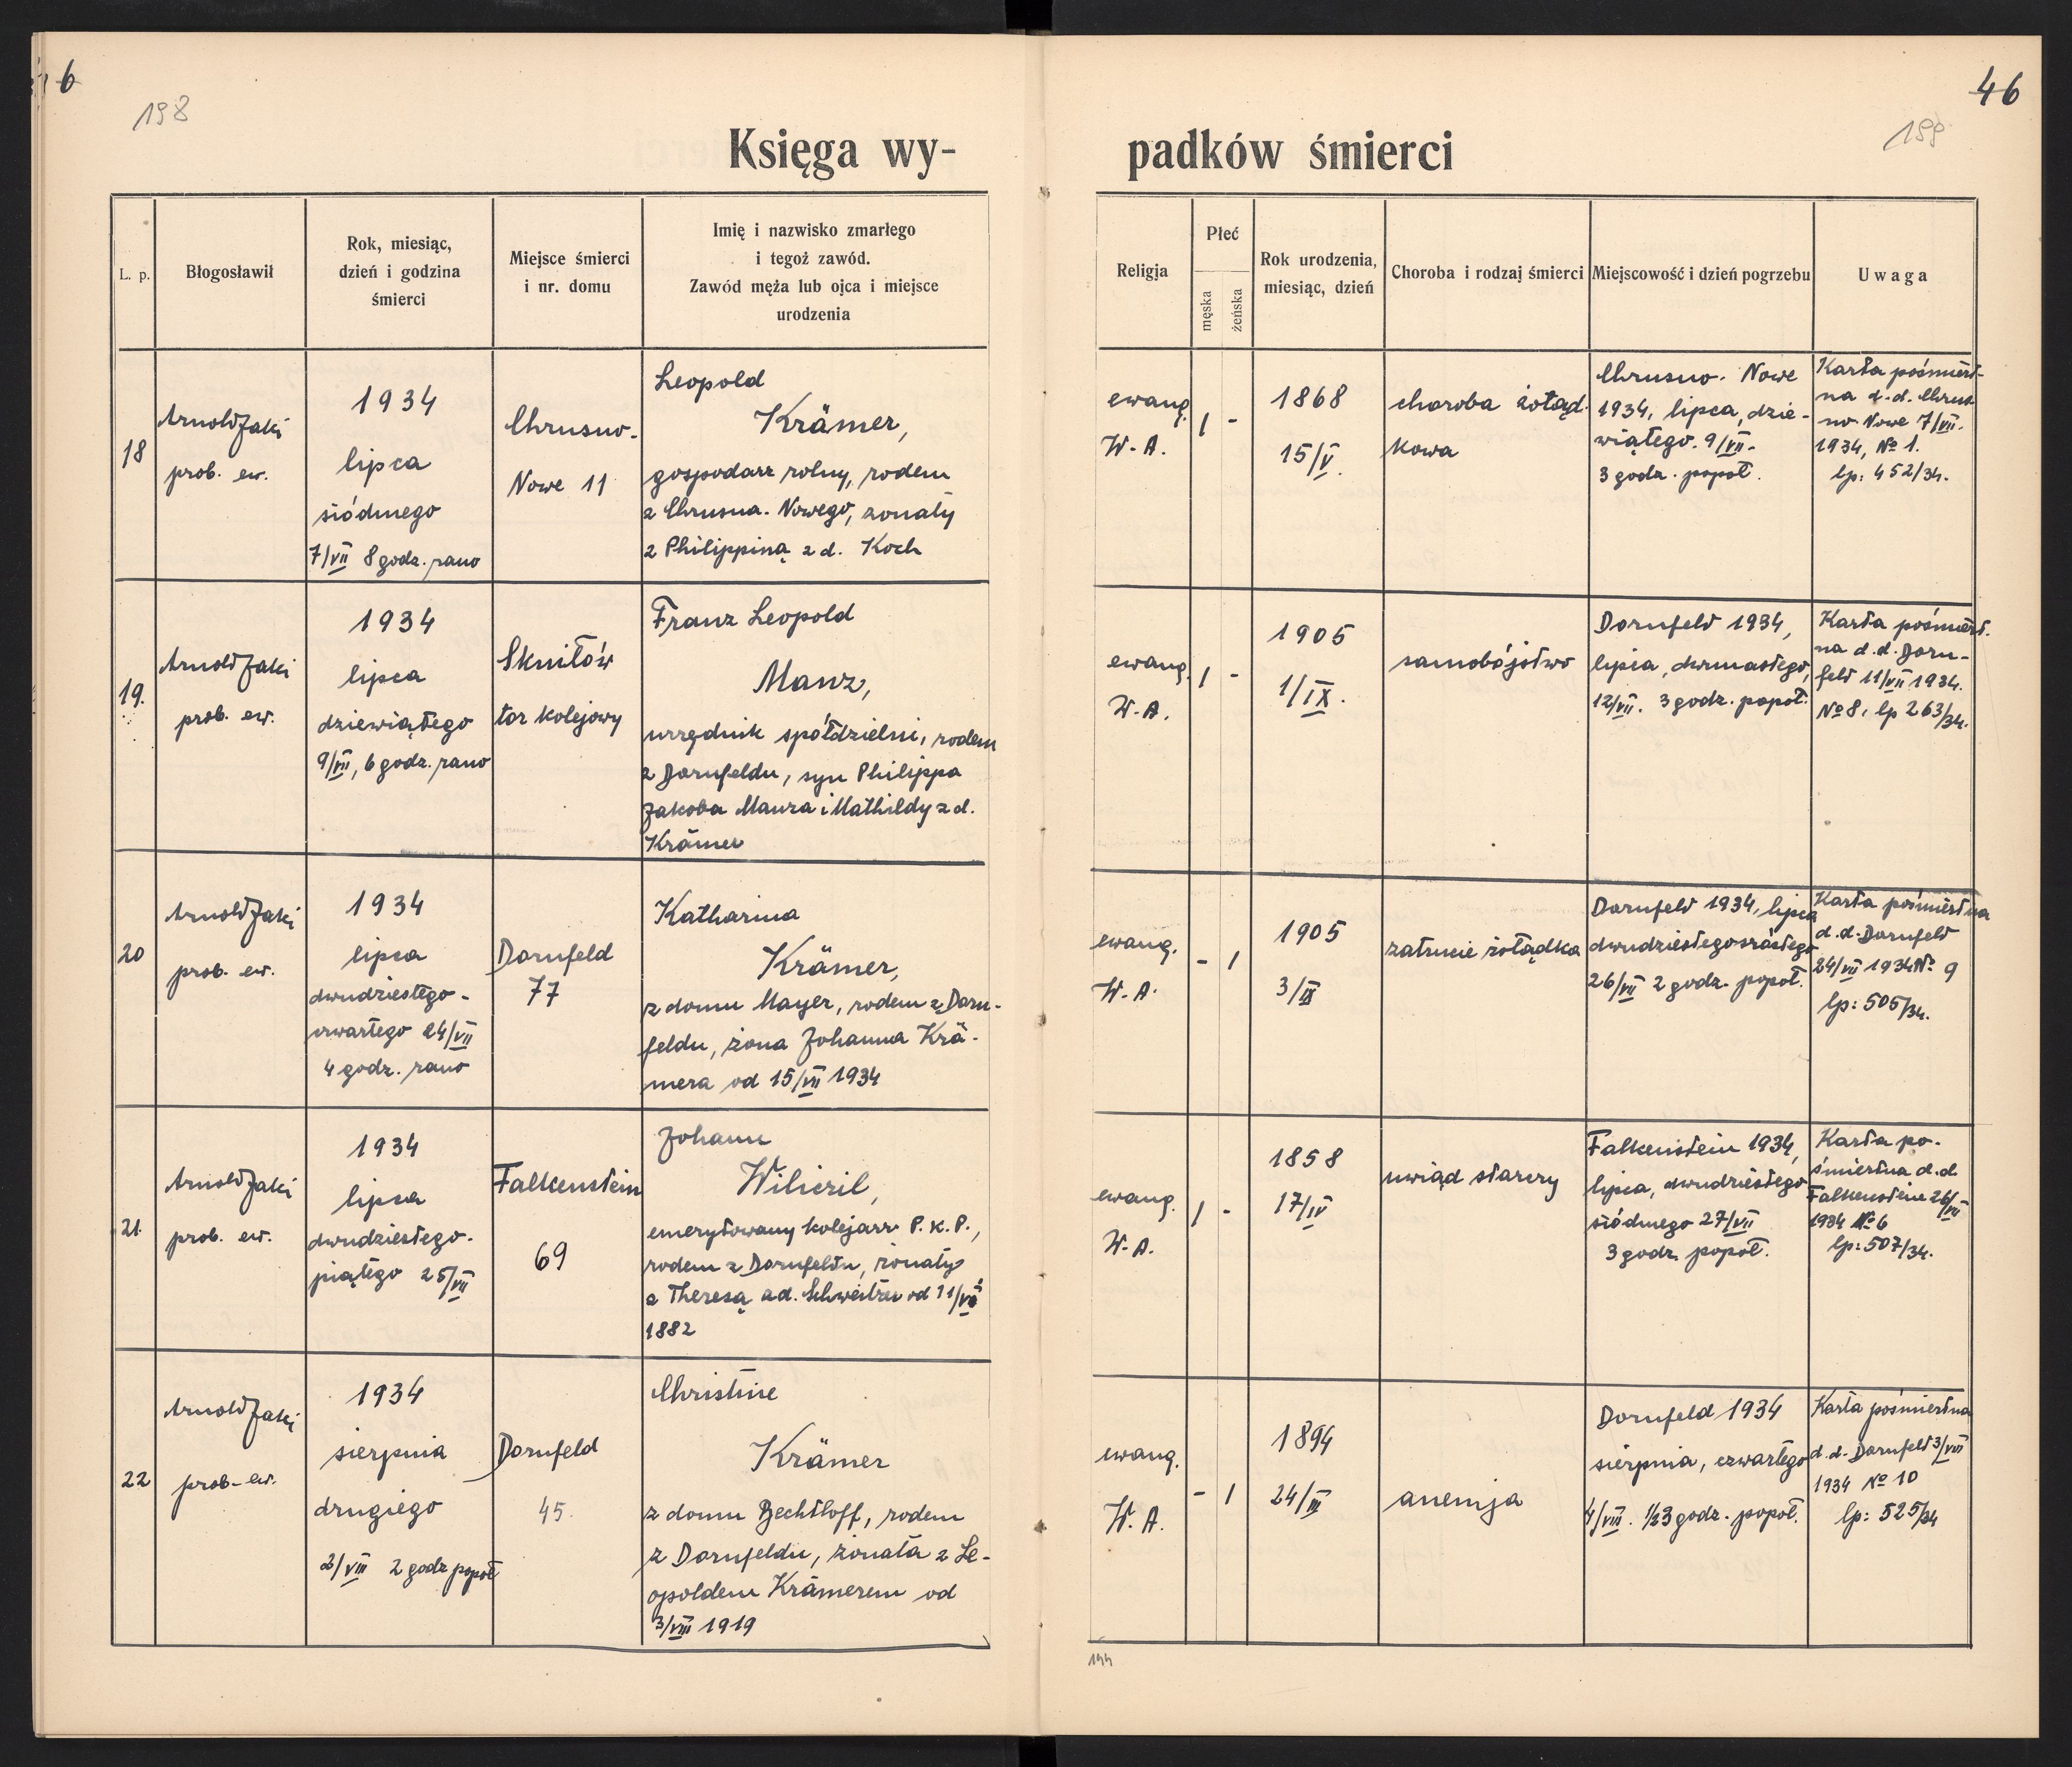 6
198
Księga wy-
L. p.
Błogosławił
Rok, miesiąc,
dzień i godzina
śmierci
Miejsce śmierci
i nr. domu
Imię i nazwisko zmarłego
i tegoż zawód.
Zawód męża lub ojca i miejsce
urodzenia
18
Arnold Jaki
prob. ew.
1934
lipca
siódmego
7/VII 8 godz. rano
Chrusno-
Nowe 11
Leopold
Krämer,
gospodarz rolny, rodem
z Chrusna-Nowego, żonaty
z Philippiną z d. Koch
19.
Arnold Jaki
prob. ew.
1934
lipca
dziewiątego
9/VII, 6 godz. rano
Skniłów
tor kolejowy
Franz Leopold
Manz,
urzędnik spółdzielni, rodem
z Dornfeldu, syn Philippa
Jakoba Manza i Mathildy z d.
Krämer
20
Arnold Jaki
prob. ew.
1934
lipca
dwudziestego-
czwartego 24/VII
4 godz. rano
Dornfeld
77
Katharina
Krämer,
z domu Mayer, rodem z Dorn-
feldu, żona Johanna Krä-
mera od 15/VII 1934
21.
Arnold Jaki
prob. ew.
1934
lipca
dwudziestego-
piątego 25/VII
Falkenstein
69
Johann
Wiliczil,
emerytowany kolejarz P. K. P.,
rodem z Dornfeldu, żonaty
z Theresą z d. Schweitzer od 11/
1882
22
Arnold Jaki
prob. ew.
1934
sierpnia
drugiego
2/VIII 2 godz popoł
Dornfeld
45.
Christine
Krämer
z domu Bechtloff, rodem
z Dornfeldu, żonata z Le-
opoldem Krämerem od
3/VIII 1919
46
199
padków śmierci
Religja
Płeć
męska
żeńska
Rok urodzenia,
miesiąc, dzień
Choroba i rodzaj śmierci
Miejscowość i dzień pogrzebu
Uwaga
ewang.
W. A.
1 -
1868
15/V.
choroba żołąd-
kowa
Chrusno-Nowe
1934, lipca, dzie-
wiątego 9/VII.
3 godz. popoł.
Karta pośmiert-
na d.d. Chrus-
no-Nowe 7/VII.
1934, № 1.
lp: 452/34.
ewang.
W. A.
1 -
1905
1/IX.
samobójstwo
Dornfeld 1934,
lipca, dwunastego,
12/VII. 3 godz. popoł.
Karta pośmiert.
na d.d. Dorn-
feld 11/VII 1934.
№ 8, lp 263/34.
ewang.
W. A.
- 1
1905
3/IX
zatrucie żołądka
Dornfeld 1934, lipca
dwudziestegoszóstego
26/VII 2 godz. popoł.
Karta pośmiertna
d.d. Dornfeld
24/VII 1934 № 9
lp: 505/34.
ewang.
W. A.
1 -
1858
17/IV
uwiąd starczy
Falkenstein 1934,
lipca, dwudziestego
siódmego 27/VII
3 godz. popoł.
Karta po-
śmiertna d.d
Falkenstein 26/VII
1934 № 6
lp: 507/34.
ewang.
W. A.
- 1
1894
24/III
anemja
Dornfeld 1934
sierpnia, czwartego
4/VIII. 1/2 3 godz. popoł.
Karta pośmiertna
d.d. Dornfeld 3/VIII
1934 № 10
lp: 525/34
144